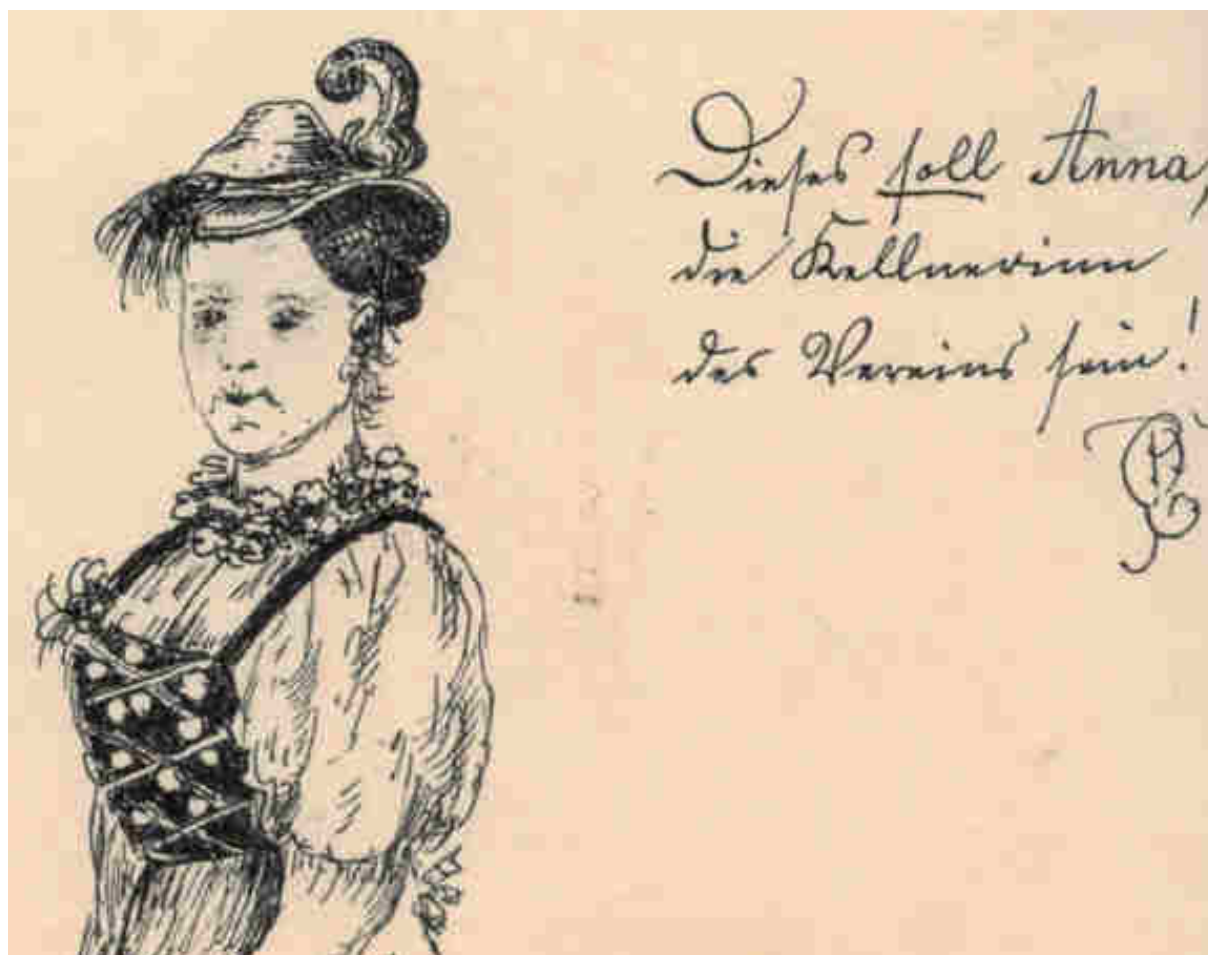 Dieses soll Anna,
die Kellnerinn
des Vereins sein!